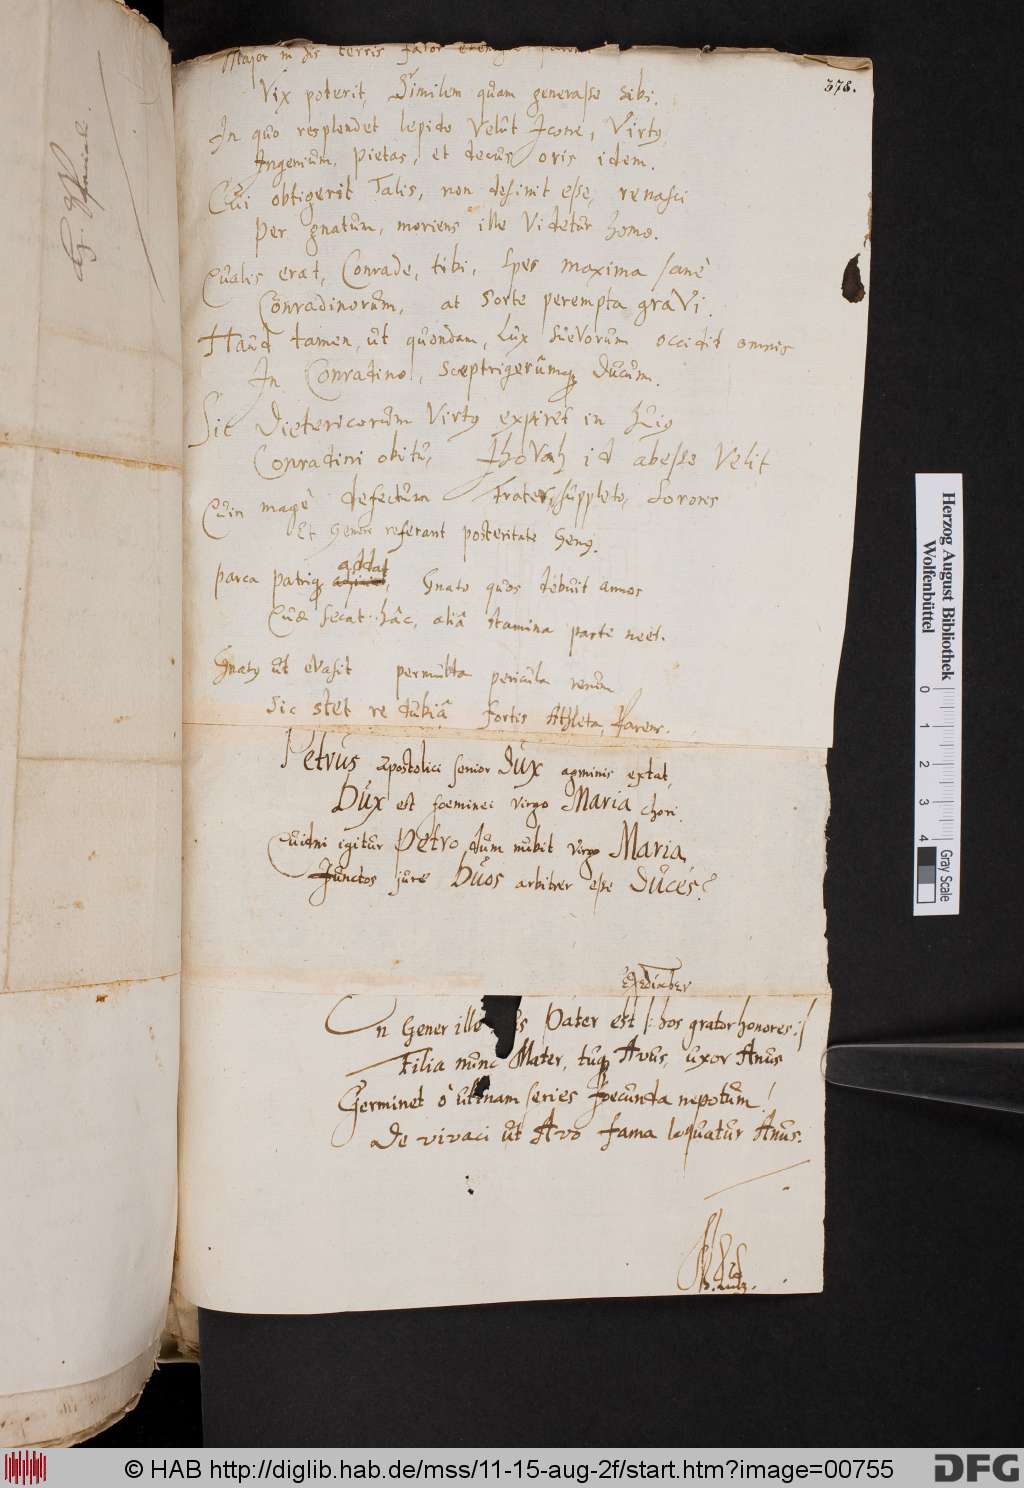 Major in dis terris
378.
Vix poterit, Similem quam generasse sibi.
In quo resplendet lepido velut Icone, Virtus,
Ingenium, pietas, et decus oris idem.
Cui obtigerit Talis, non desinit esse, renasci
Per gnatum, moriens ille Videtur homo.
Qualis erat, Conrade, tibi, spes maxima sanè
Conradinorum, at Sorte perempta graVi.
Haud tamen, ut quondam, Lux SueVorum occidit omnis
In Conradino, Sceptrigerumq; Ducum.
Sic Dietericorum Virtus expiret in huius
Conradini obitu, JhoVah id abesse Velit
Quin magè defectum Frater suppleto, Sorores
Et Genere referant posteritate Genus.
Parca patriq; addat, Gnato quos debuit annos
Quae secat hâc, aliâ stamina parte neet.
Gnatus ut evasit permulta pericula rerum
Sic stet re dubiâ fortis Athleta, Parens.
Petrus Apostolici senior Dux agminis extat,
Dux est foeminei virgo Maria chori.
Quidni igitur Petro, dum nubit virgo Maria,
Junctos jure Duos arbitrer esse Duces?
En Gener ille Pater est |: hos grator honores :|
Filia nunc Mater, tuq; Avus, uxor Anus
Germinet ô utinam series foecunda nepotum!
De vivaci ut Avo fama loquatur Anus.
Herzog August Bibliothek
Wolfenbüttel
0 1 2 3 4
Gray Scale
© HAB http://diglib.hab.de/mss/11-15-aug-2f/start.htm?image=00755
DFG